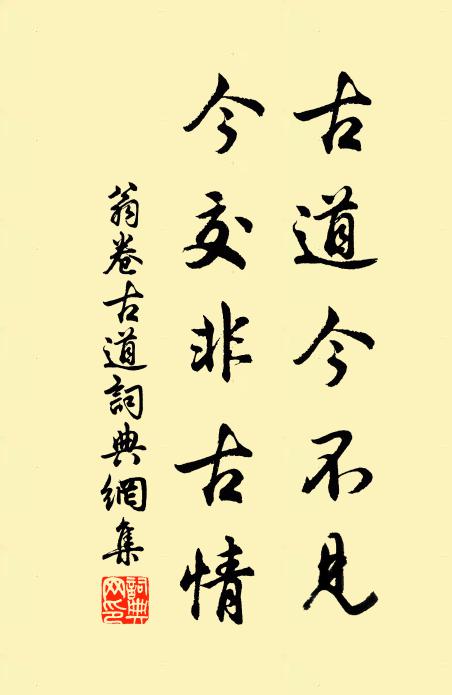 古道今不見
今交非古情
翁卷古道詞典網集
詞典網印